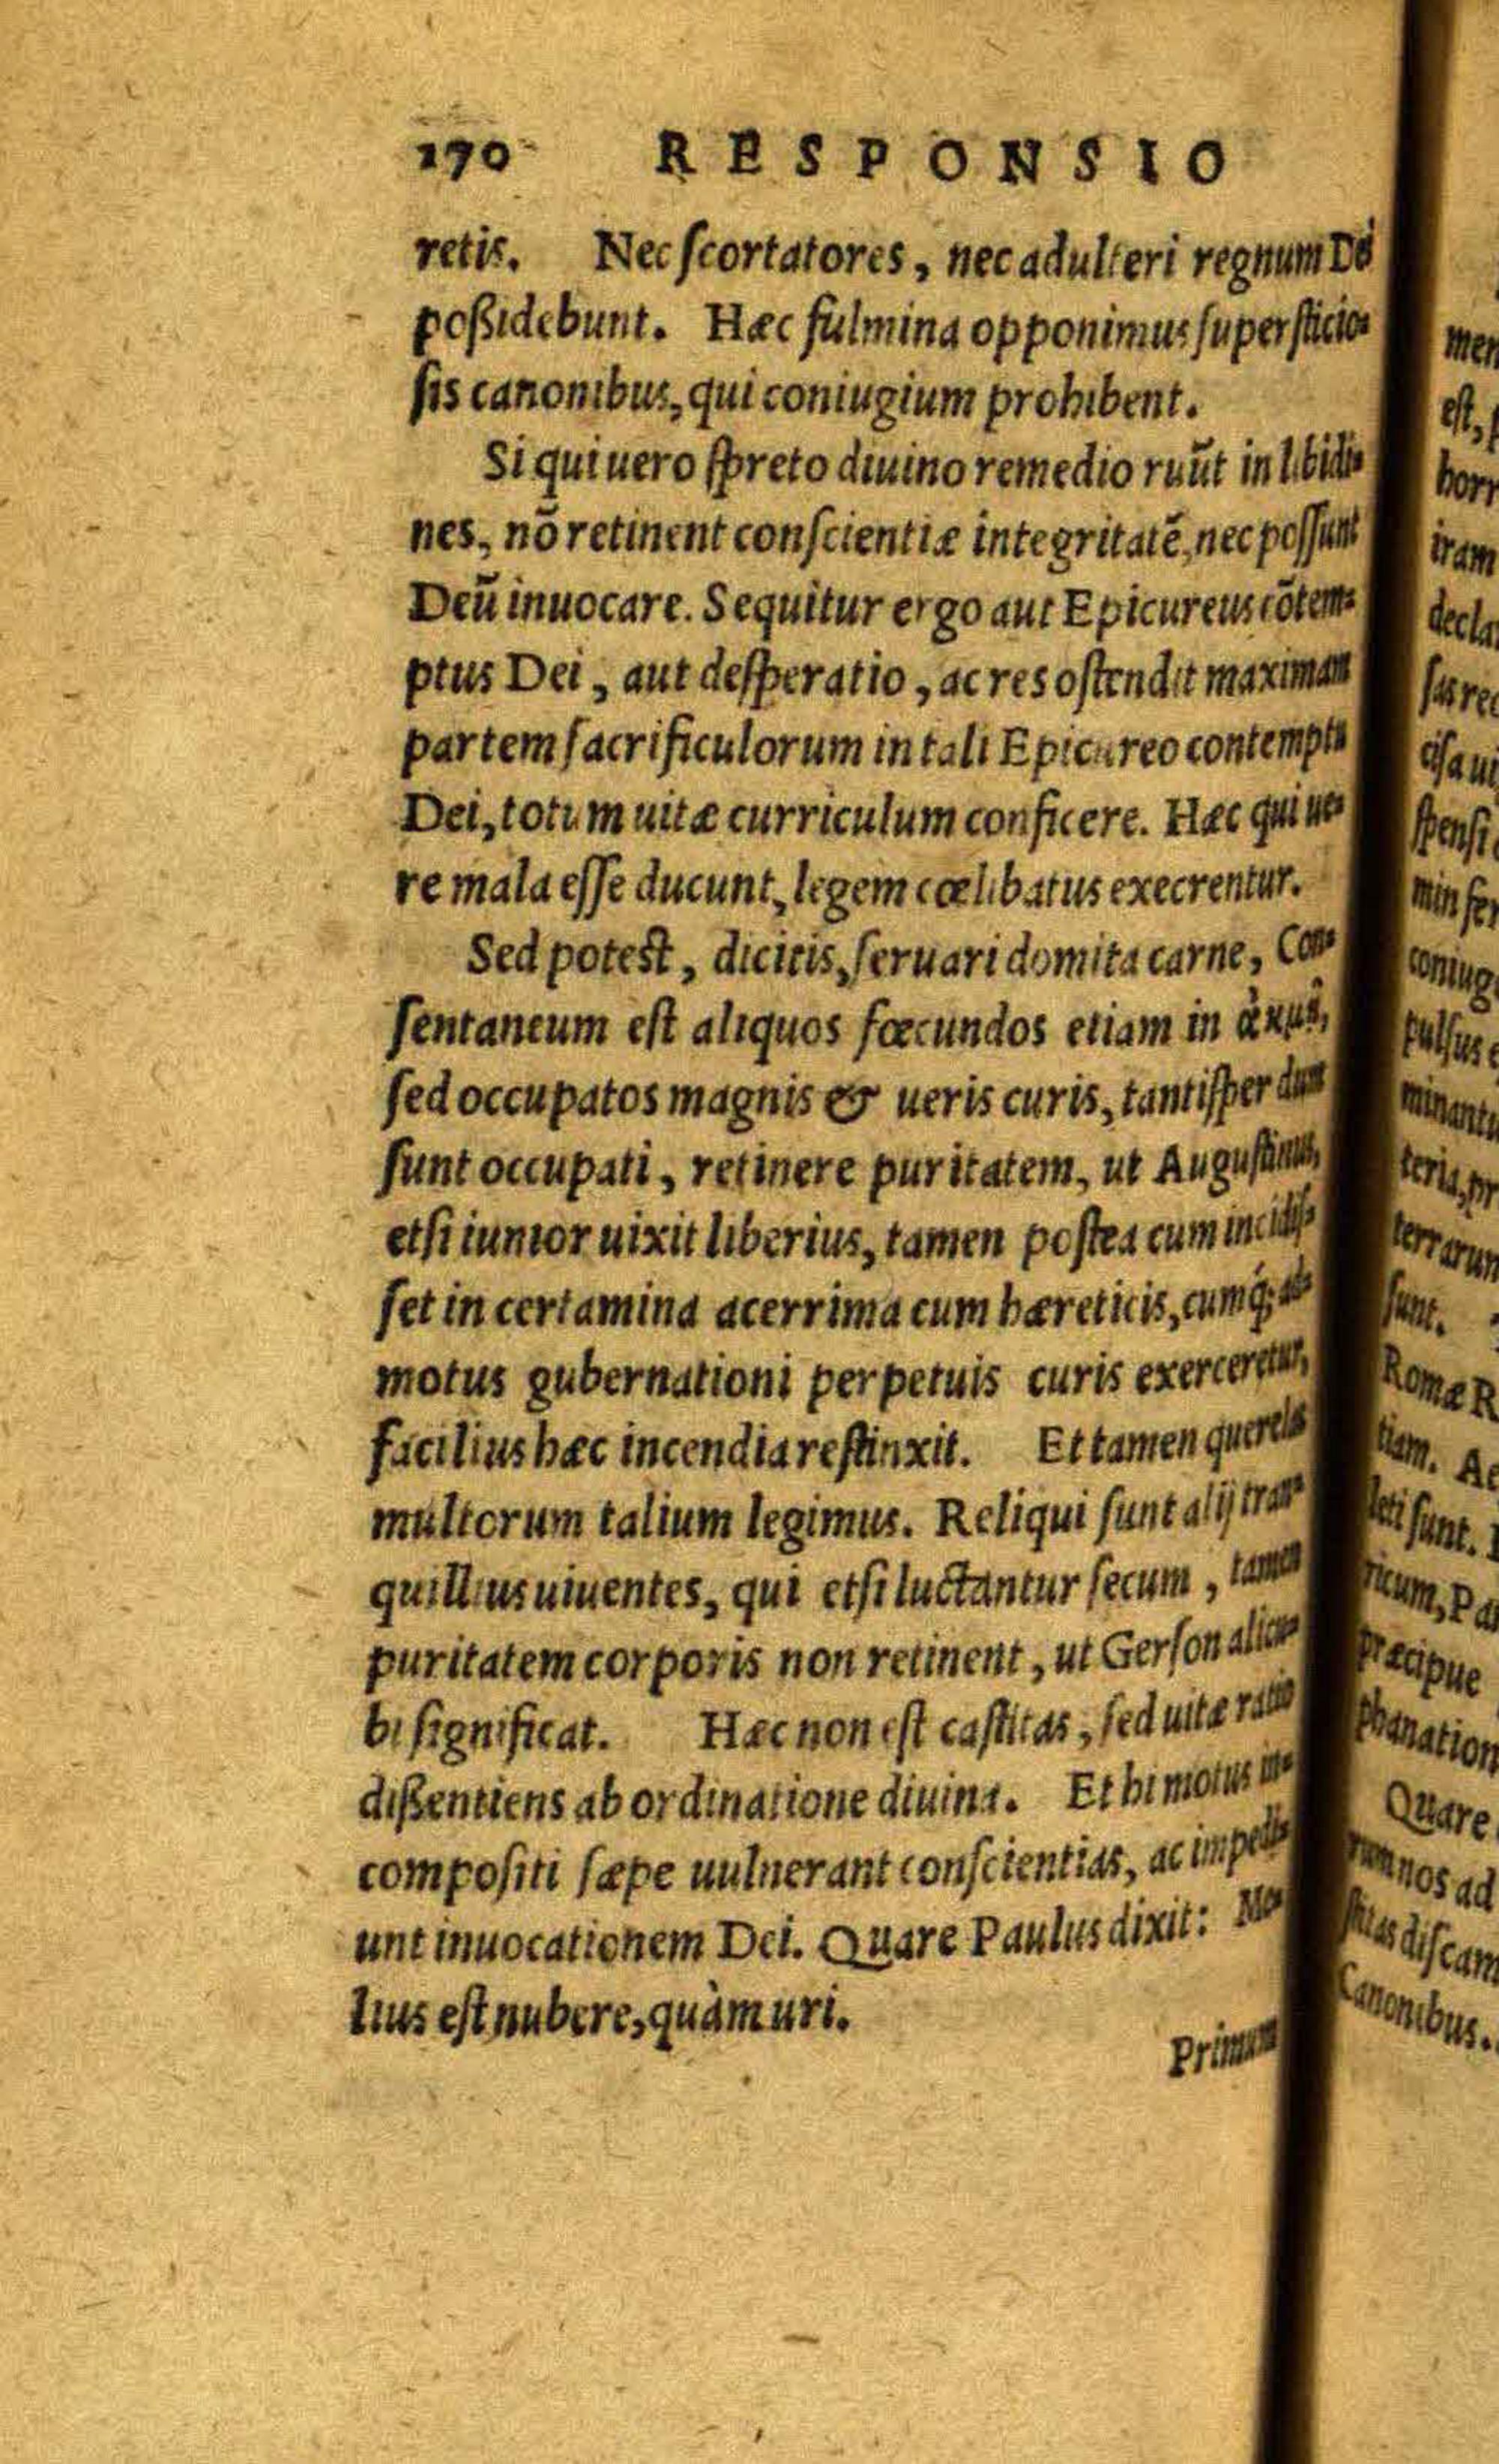 170 RESPONSIO
retis. Nec ſcortatores, nec adulteri regnum Dei
poßidebunt. Hæc fulmina opponimus ſuperſticio-
ſis canonibus, qui coniugium prohibent.
Si qui uero ſpreto diuino remedio ruūt in libidi-
nes, nō retinent conſcientiæ integritatē, nec poſſunt
Deū inuocare. Sequitur ergo aut Epicureus cōtem-
ptus Dei, aut deſperatio, ac res oſtendit maximam
partem ſacrificulorum in tali Epicureo contemptu
Dei, totum uitæ curriculum conficere. Hæc qui ue-
re mala eſſe ducunt, legem cœlibatus execrentur.
Sed poteſt, dicitis, ſeruari domita carne, Con-
ſentaneum eſt aliquos fœcundos etiam in
ſed occupatos magnis & ueris curis, tantiſper dum
ſunt occupati, retinere puritatem, ut Auguſtinus,
etſi iunior uixit liberius, tamen poſtea cum incidiſ-
ſet in certamina acerrima cum hæreticis, cumq́; ad-
motus gubernationi perpetuis curis exerceretur,
facilius hæc incendia reſtinxit. Et tamen querelas
multorum talium legimus. Reliqui ſunt alij tran-
quillius uiuentes, qui etſi luctantur ſecum, tamen
puritatem corporis non retinent, ut Gerſon alicu-
bi ſignificat. Hæc non eſt caſtitas, ſed uitæ ratio
dißentiens ab ordinatione diuina. Et hi motus in-
compoſiti ſæpe uulnerant conſcientias, ac impedi-
unt inuocationem Dei. Quare Paulus dixit: Me-
lius eſt nubere, quàm uri.
Primum
est,
iram
ſunt.
Romæ R
tiam. Ac
leti ſunt.
præcipue
Quare
nos ad
diſcam
Canonibus.